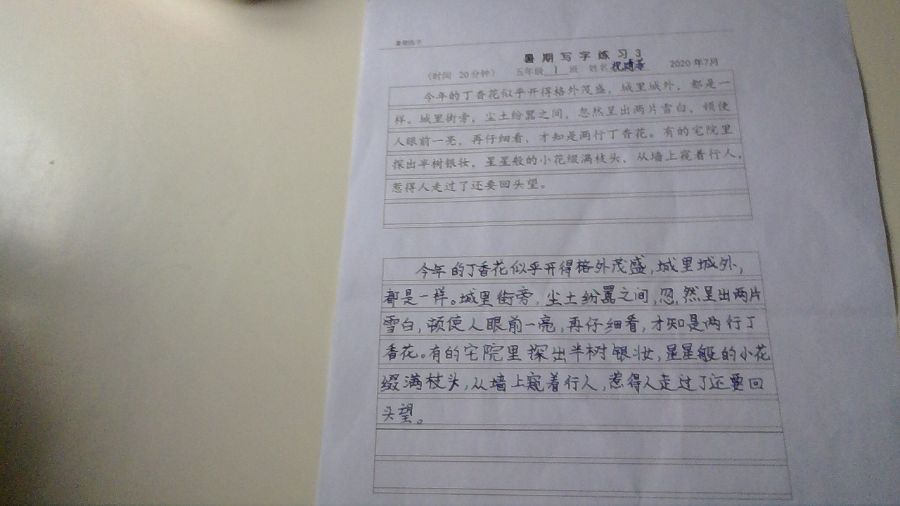 暑期写字练习3
（时间 20分钟） 五年级 1 班 姓名 2020年7月
今年的丁香花似乎开得格外茂盛，城里城外，都是一
样。城里街旁，尘土纷嚣之间，忽然呈出两片雪白，顿使
人眼前一亮，再仔细看，才知是两行丁香花。有的宅院里
探出半树银妆，星星般的小花缀满枝头，从墙上窥着行人，
惹得人走过了还要回头望。
今年的丁香花似乎开得格外茂盛，城里城外，
都是一样。城里街旁，尘土纷嚣之间，忽，然呈出两片
雪白，顿使人眼前一亮，再仔细看，才知是两行丁
香花。有的宅院里探出半树银妆，星星般的小花
缀满枝头，从墙上窥着行人，惹得人走过了还要回
头望。